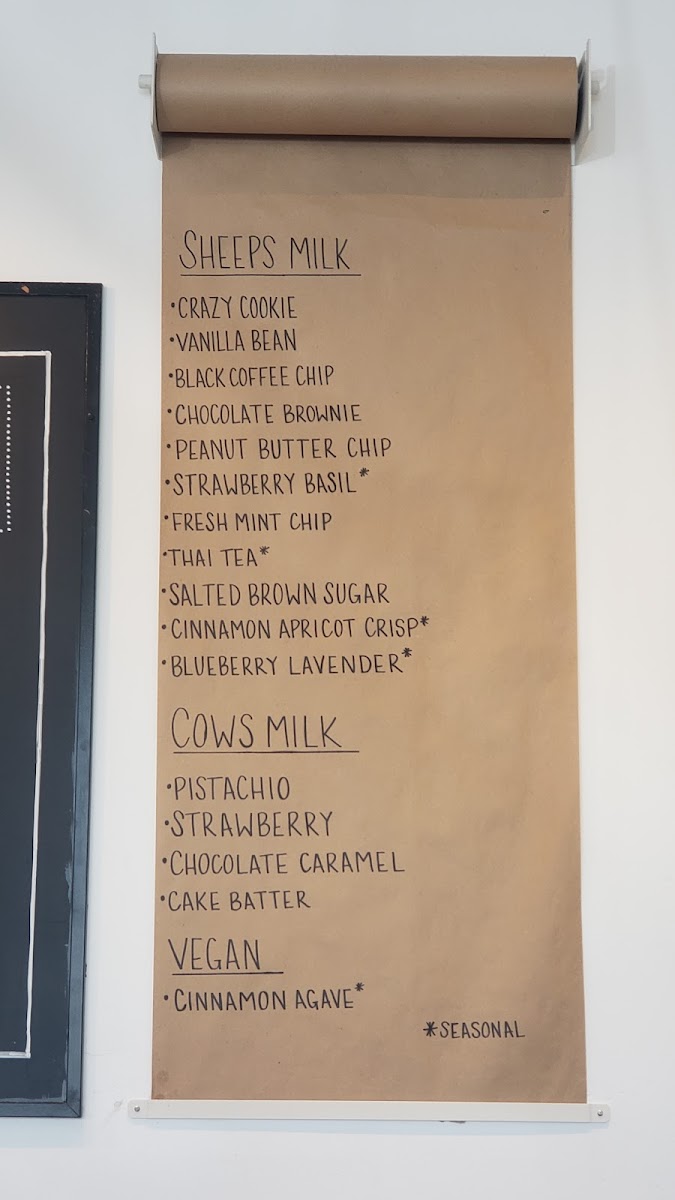 SHEEPS MILK
•CRAZY COOKIE
•VANILLA BEAN
•BLACK COFFEE CHIP
•CHOCOLATE BROWNIE
•PEANUT BUTTER CHIP
•STRAWBERRY BASIL*
•FRESH MINT CHIP
•THAI TEA*
•SALTED BROWN SUGAR
•CINNAMON APRICOT CRISP*
•BLUEBERRY LAVENDER*
COWS MILK
•PISTACHIO
•STRAWBERRY
•CHOCOLATE CARAMEL
•CAKE BATTER
VEGAN
•CINNAMON AGAVE*
*SEASONAL